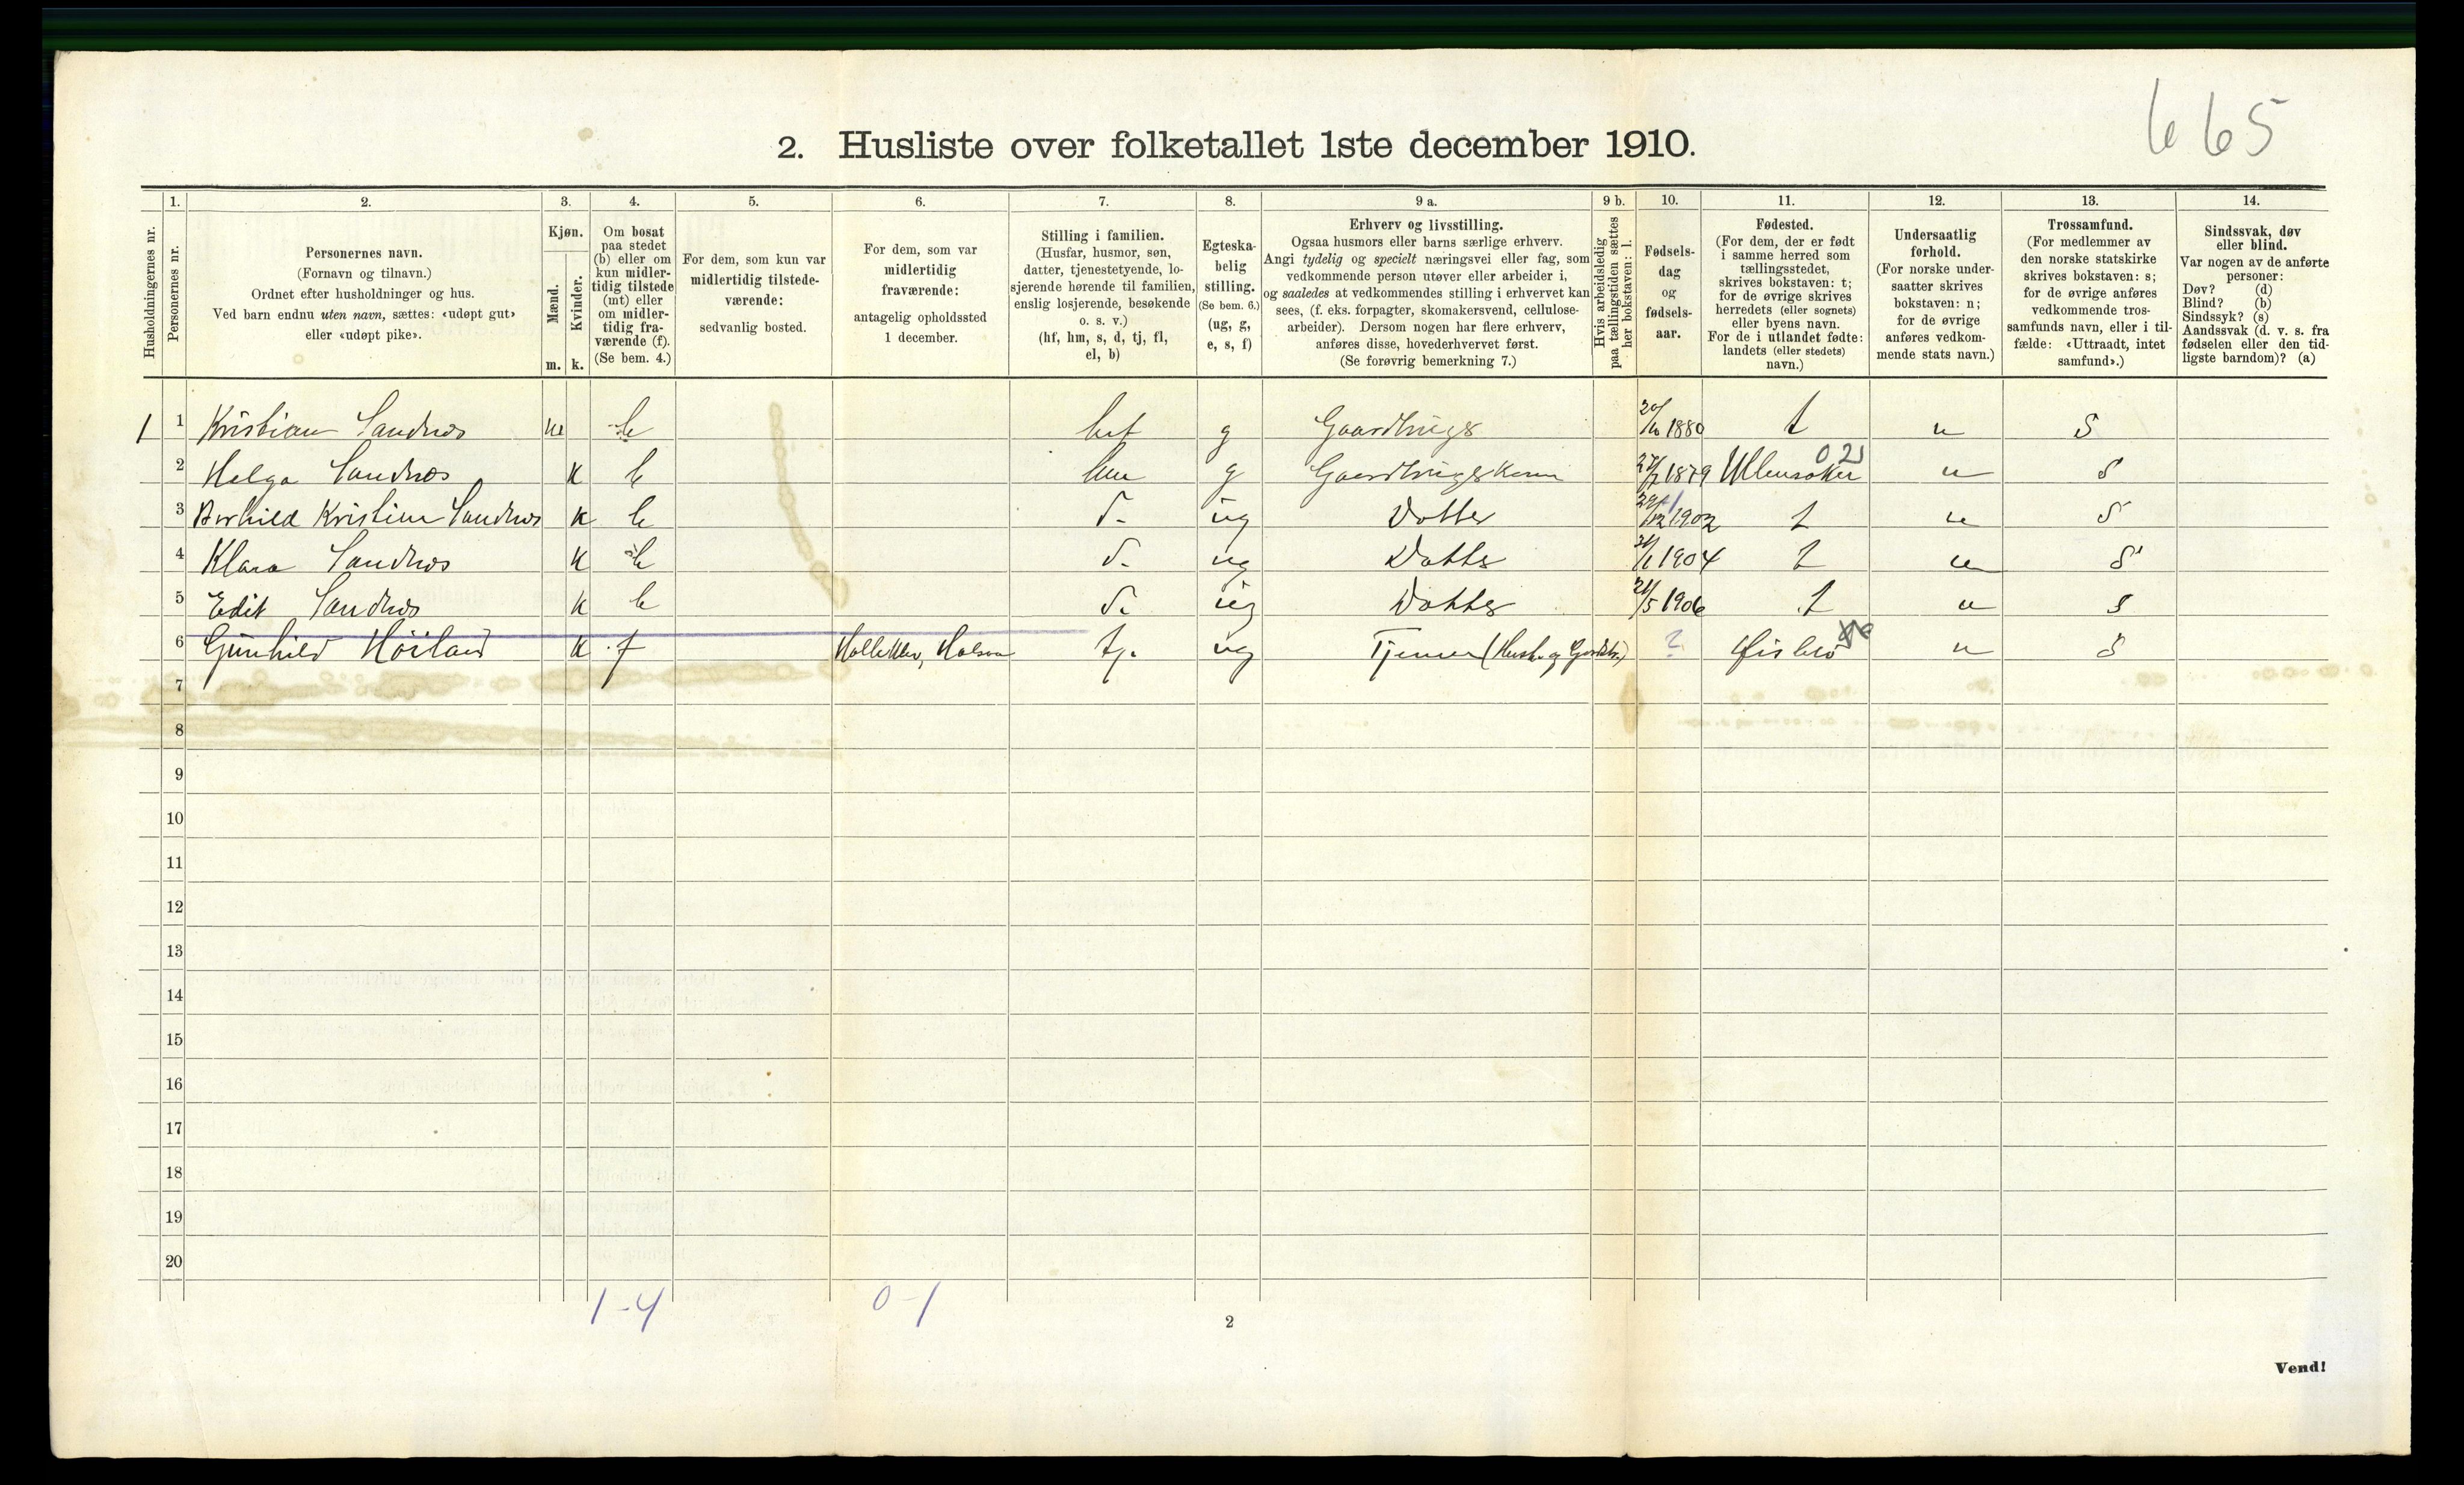 665
2. Husliste over folketallet 1ste december 1910.
Husholdningernes nr.
1.
Personernes nr.
2.
Personernes navn.
(Fornavn og tilnavn.)
Ordnet efter husholdninger og hus.
Ved barn endnu uten navn, sættes: «udøpt gut»
eller «udøpt pike».
3.
Kjøn.
Mænd.
Kvinder.
m. k.
4.
Om bosat
paa stedet
(b) eller om
kun midler-
tidig tilstede
(mt) eller
om midler-
tidig fra-
værende (f).
(Se bem. 4.)
5.
For dem, som kun var
midlertidig tilstede-
værende:
sedvanlig bosted.
6.
For dem, som var
midlertidig
fraværende:
antagelig opholdssted
1 december.
7.
Stilling i familien.
(Husfar, husmor, søn,
datter, tjenestetyende, lo-
sjerende hørende til familien,
enslig losjerende, besøkende
o. s. v.)
(hf, hm, s, d, tj, fl,
el, b)
8.
Egteska-
belig
stilling.
(Se bem. 6.)
(ug, g,
e, s, f)
9 a.
Erhverv og livsstilling.
Ogsaa husmors eller barns særlige erhverv.
Angi tydelig og specielt næringsvei eller fag, som
vedkommende person utøver eller arbeider i,
og saaledes at vedkommendes stilling i erhvervet kan
sees, (f. eks. forpagter, skomakersvend, cellulose-
arbeider). Dersom nogen har flere erhverv,
anføres disse, hovederhvervet først.
(Se forøvrig bemerkning 7.)
9 b.
Hvis arbeidsledig
paa tællingstiden sættes
her bokstaven: l.
10.
Fødsels-
dag
og
fødsels-
aar.
11.
Fødested.
(For dem, der er født
i samme herred som
tællingsstedet,
skrives bokstaven: t;
for de øvrige skrives
herredets (eller sognets)
eller byens navn.
For de i utlandet fødte:
landets (eller stedets)
navn.)
12.
Undersaatlig
forhold.
(For norske under-
saatter skrives
bokstaven: n;
for de øvrige
anføres vedkom-
mende stats navn.)
13.
Trossamfund.
(For medlemmer av
den norske statskirke
skrives bokstaven: s;
for de øvrige anføres
vedkommende tros-
samfunds navn, eller i til-
fælde: «Uttraadt, intet
samfund».)
14.
Sindssvak, døv
eller blind.
Var nogen av de anførte
personer:
Døv? (d)
Blind? (b)
Sindssyk? (s)
Aandssvak (d. v. s. fra
fødselen eller den tid-
ligste barndom)? (a)
1 1 Kristian Sandnes m b huf g Gaardbruger 1880 t n S
2 Helga Sandnes k b hm g 1879 Ullensaker 021 n S
3 Borhild Kristine Sandnes k b d. ug Datter 1902 t n S
4 Klara Sandnes k b d. ug Datter 1904 t n S
5 Edit Sandnes k b d. ug Datter 21/5 1906 t n S
6 Gunhild Höiland k f tj. ug ? n S
7
8
9
10
11
12
13
14
15
16
17
18
19
20
1-4 0-1
2
Vend!